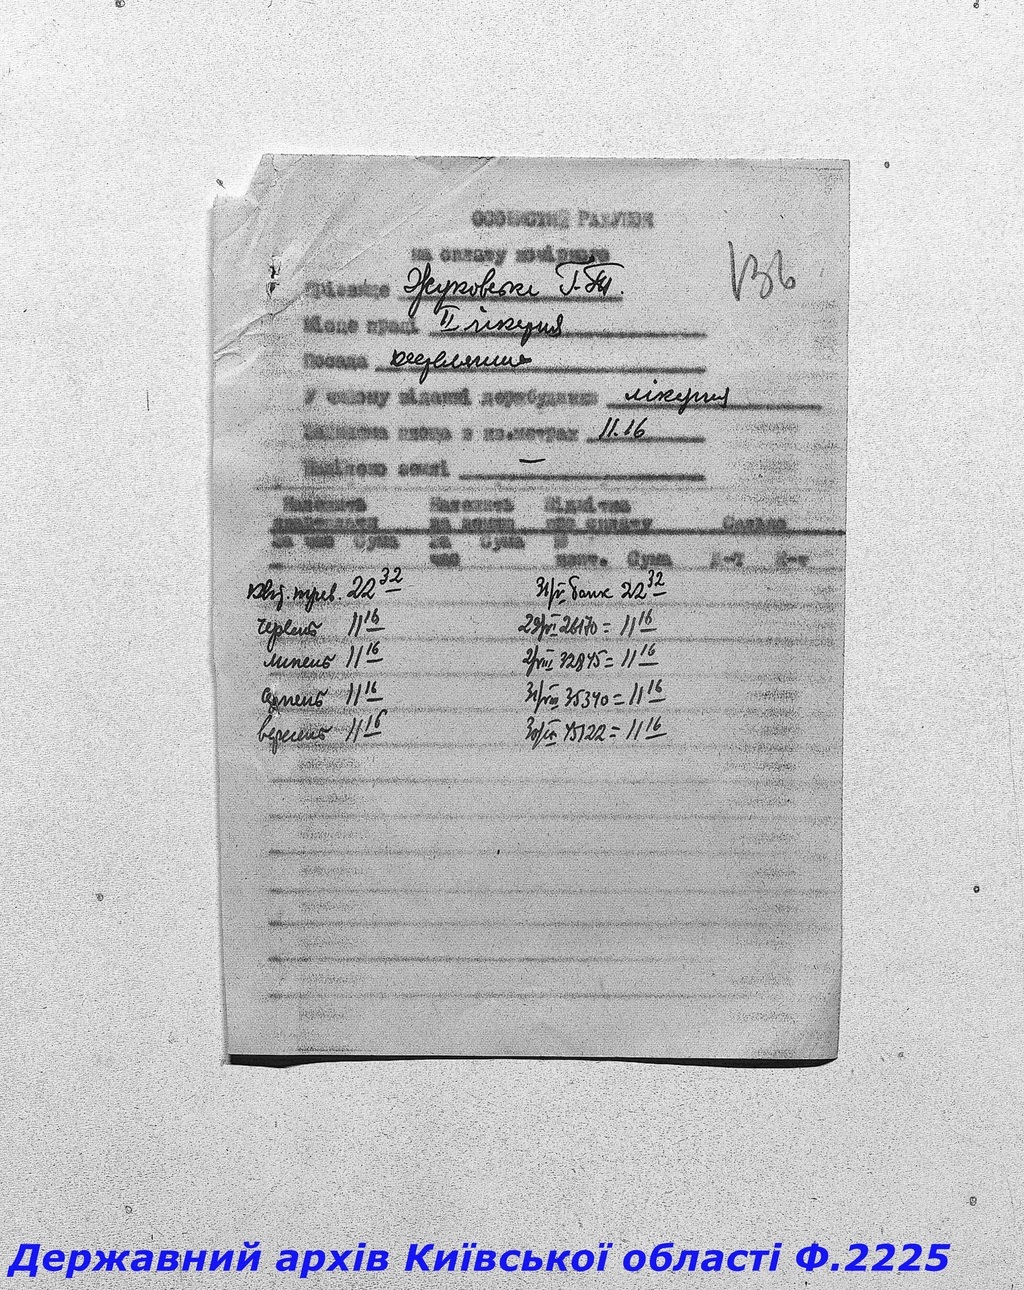 ОСОБИСТИЙ РАХУНОК
на оплату комірного
136
Прізвище Жуковські Г.
Місце праці II лікерня
Посада
У чийому віданні держбудинок лікерня
Залишкова площа в кв.метрах 11.16
Наділено землі —
Належить Належить Відмітка
за про оплату Сальдо
За час Сума За Сума №
час квит. Сума Д-т К-т
Квіт. трав. 22 32 31/V банк 22 32
Червень 11 16 29/VI 26170 = 11 16
липень 11 16 2/VIII 32845 = 11 16
серпень 11 16 31/VIII 35340 = 11 16
вересень 11 16 30/IX 45122 = 11 16
Державний архів Київської області Ф.2225